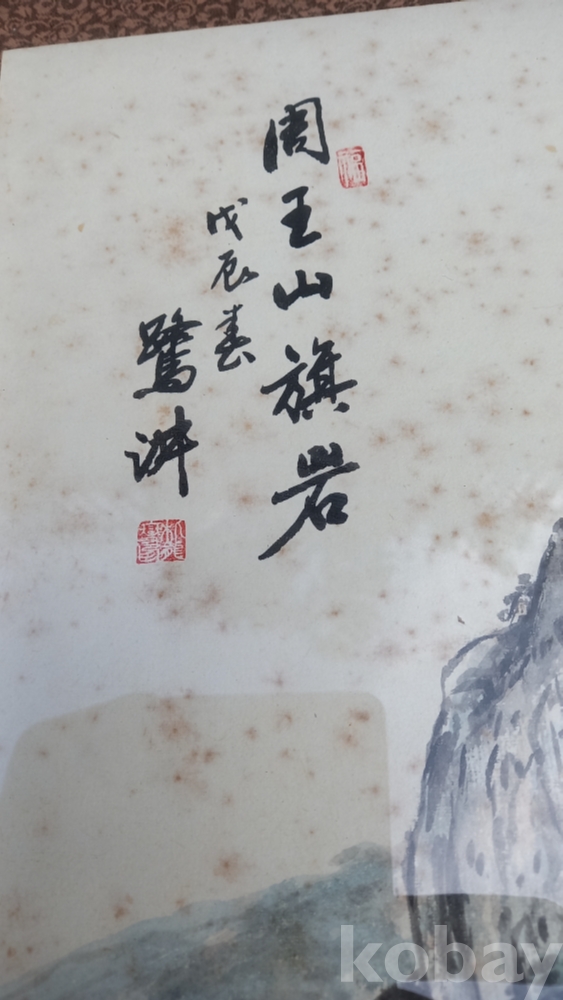 周王山旗岩
戊辰春
鷺洲
福
kobay